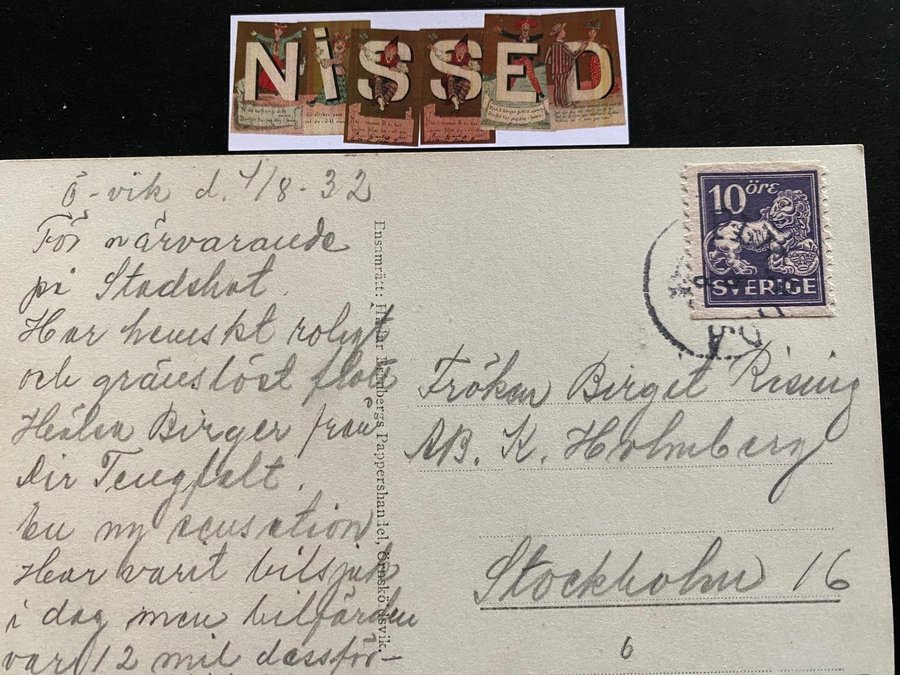 NISSED
Ö-vik d. 1/8-32
För närvarande
på Stadshot.
Har hemskt roligt
och gränslöst flott
Hälsa Birger från
Dir Tengfelt.
En ny sensation
Har varit bilsjuk
i dag men bilfärden
var 12 mil dessför-
Ensamrätt: Pappershandel, Örnsköldsvik.
10 ÖRE
SVERIGE
Fröken Birgit Rising
AB. K. Holmberg
Stockholm 16
6